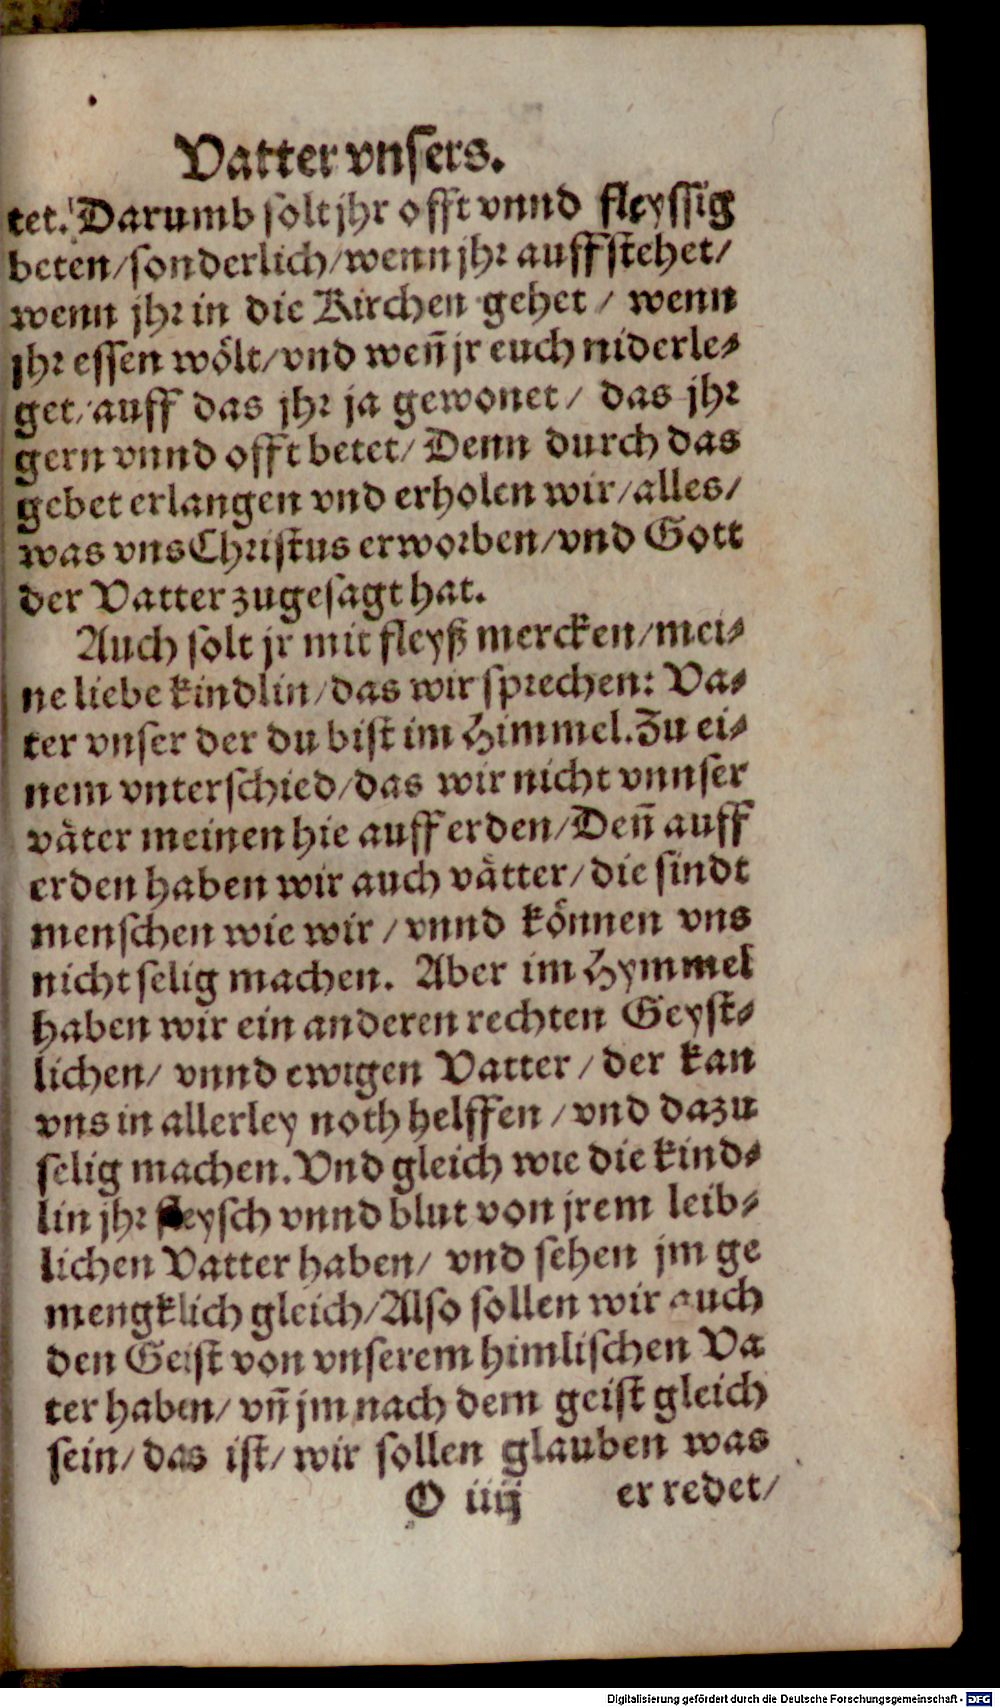 Vatter vnsers.
tet. Darumb solt jhr offt vnnd fleyssig
beten/sonderlich/wenn jhr auffstehet/
wenn jhr in die Kirchen gehet / wenn
jhr essen wölt/vnd wen̄ jr euch niderle-
get/auff das jhr ja gewonet / das jhr
gern vnnd offt betet/ Denn durch das
gebet erlangen vnd erholen wir/alles/
was vns Christus erworben/vnd Gott
der Vatter zugesagt hat.
Auch solt jr mit fleyß mercken/mei-
ne liebe kindlin/das wir sprechen: Va-
ter vnser der du bist im Himmel. Zu ei-
nem vnterschied/das wir nicht vnnser
väter meinen hie auff erden/Den̄ auff
erden haben wir auch vätter/die sindt
menschen wie wir / vnnd können vns
nicht selig machen. Aber im Hymmel
haben wir ein anderen rechten Geyst-
lichen/ vnnd ewigen Vatter / der kan
vns in allerley noth helffen / vnd dazu
selig machen. Vnd gleich wie die kind-
lin jhr fleysch vnnd blut von jrem leib-
lichen Vatter haben/ vnd sehen jm ge
mengklich gleich/Also sollen wir auch
den Geist von vnserem himlischen Va
ter haben/ vn̄ jm nach dem geist gleich
sein/das ist/wir sollen glauben was
O iiij er redet/
Digitalisierung gefördert durch die Deutsche Forschungsgemeinschaft - DFG